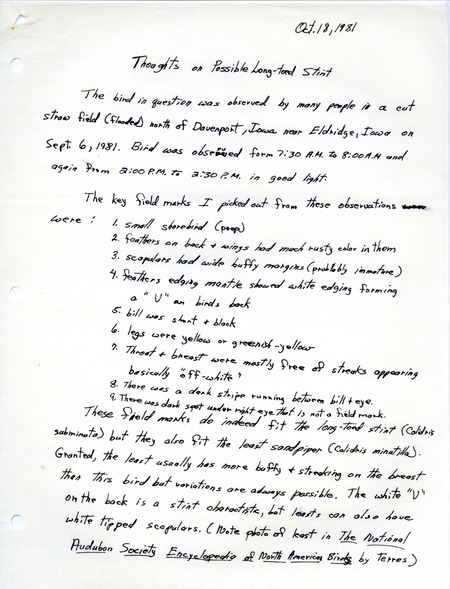 Oct. 18, 1981
Thoughts on Possible Long-toed Stint
The bird in question was observed by many people in a cut
straw field (flooded) north of Davenport, Iowa near Eldridge, Iowa on
Sept 6, 1981. Bird was observed form 7:30 A.M. to 8:00 A.M and
again from 2:00 P.M. to 2:30 P.M. in good light.
The key field marks I picked out from these observations
were : 1. small shorebird (peep)
2. feathers on back + wings had much rusty color in them
3. scapulars had wide buffy margins (probably immature)
4. feathers edging mantle showed white edging forming
a "U" on birds back
5. bill was short + black
6. legs were yellow or greenish-yellow
7. Throat + breast were mostly free of streaks appearing
basically "off-white"
8. There was a dark stripe running between bill + eye.
9. There was dark spot under right eye that is not a field mark.
These field marks do indeed fit the long-toed stint (Calidris
subminata) but they also fit the least sandpiper (Calidris minutilla).
Granted, the least usually has more buffy + streaking on the breast
then this bird but variations are always possible. The white "U"
on the back is a stint charactistic, but leasts can also have
white tipped scapulars. (Note photo of least in The National
Audubon Society Encyclopedia of North American Birds by Terres)